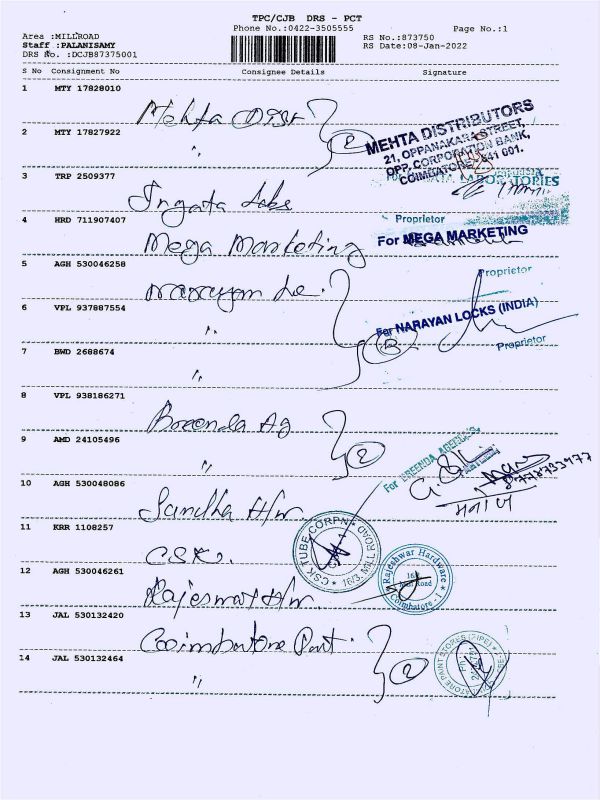 TPC/CJB DRS - PCT
Phone No.:0422-3505555
Page No.:1
Area :MILLROAD
RS No.:873750
Staff :PALANISAMY
RS Date:08-Jan-2022
DRS No. :DCJB87375001
S No Consignment No Consignee Details Signature
1 MTY 17828010
Mehta Dist
2 MTY 17827922
"
2
MEHTA DISTRIBUTORS
21, OPPANAKARA STREET,
OPP. CORPORATION BANK,
COIMBATORE - 641 001.
3 TRP 2509377
Ingata Labs
LABORATORIES
4 HRD 711907407
Mega Marketing
Proprietor
For MEGA MARKETING
5 AGH 530046258
Narayan Lo.
Proprietor
6 VPL 937887554
"
3
For NARAYAN LOCKS (INDIA)
Proprietor
7 BWD 2688674
"
8 VPL 938186271
Breenda Ag
9 AMD 24105496
"
2
For BREENDA AGENCIES
10 AGH 530048086
Sandha H/w
मनोज
11 KRR 1108257
CSK.
CSK TUBE CORPN
16/3, MILL ROAD
12 AGH 530046261
Rajeswar H/w.
Rajeshwar Hardware
Mill Road
Coimbatore - 1
13 JAL 530132420
Coimbatore Paint.
14 JAL 530132464
"
2
PAINT STORES (PIPE)